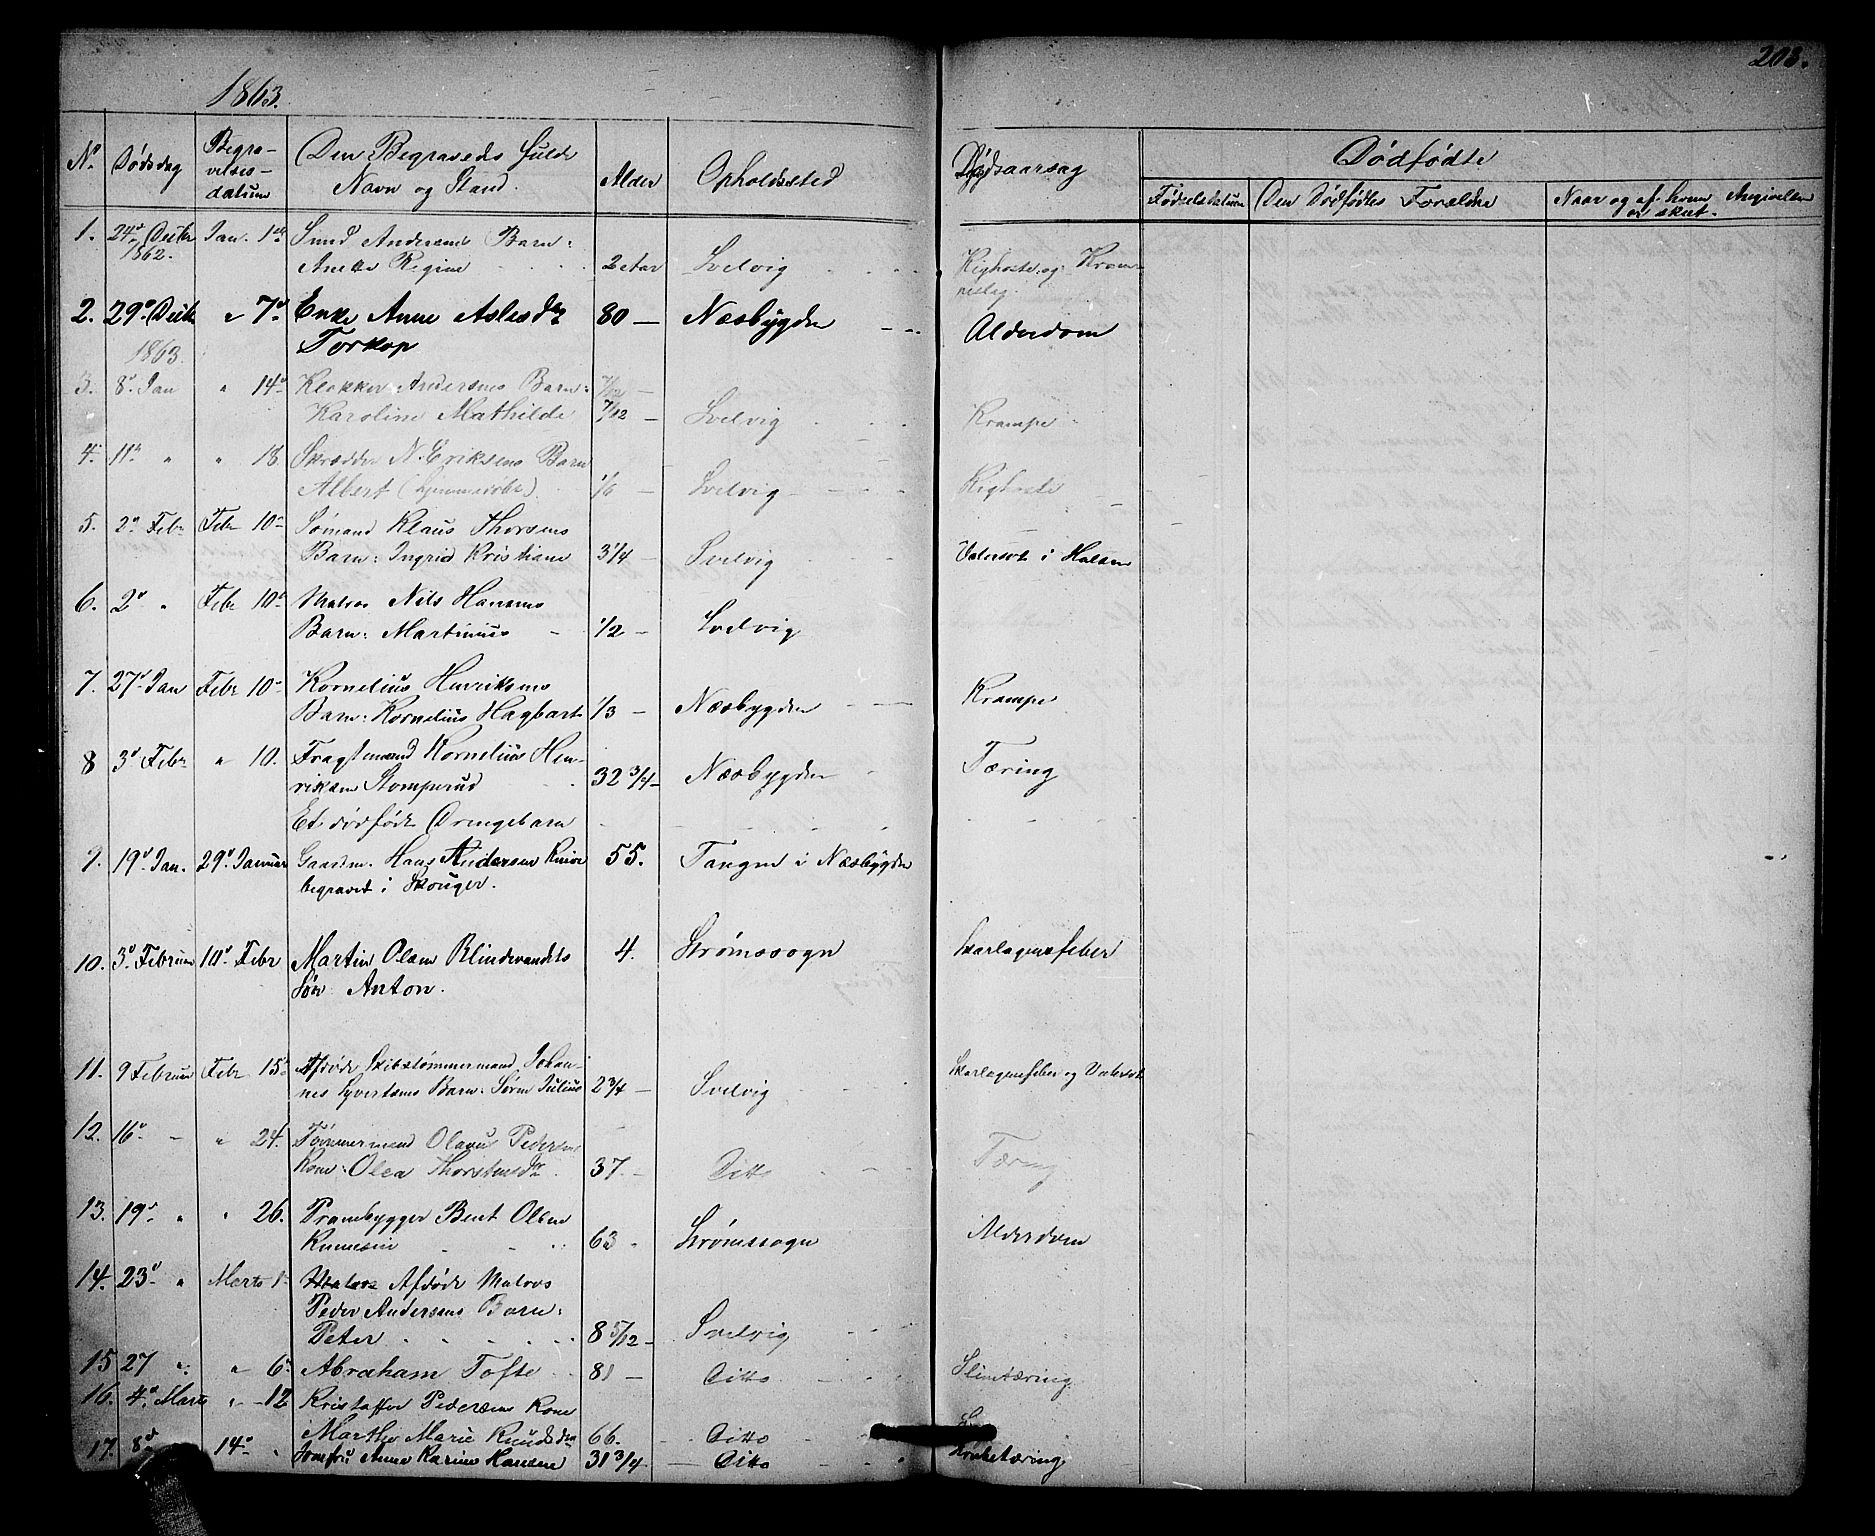 203.
1863.
No. Dødsdag Begra-velses-datum Den Begravedes fulde Navn og Stand. Alder Opholdssted Dødsaarsag Dødfødte
Fødselsdatum Den Dødfødtes Forældre Naar og af hvem Angivelsen er skeet.
1. 24d Decbr 1862. Jan. 1ste Anders Andersens Barn:
Anette Regine 2 Aar Svelvig Kighoste og Kram-
peslag
2. 29d Decbr " 7d Enke Anne Aslesdtr 80 — Næsbygden Alderdom
Torkop
1863
3. 8d Jan " 14d Klokker Andersens Barn:
Karoline Mathilde 7/12 — Svelvig Krampe
4. 11te " " 18. Skrædder N. Eriksens Barn
Albert (hjemmedøbt) 1/6 — Svelvig Kighoste
5. 2d Febr Febr 10d Sømand Klaus Thorsens
Barn: Ingrid Kristiane 3 1/4 — Svelvig Vatersot i Halsen
6. 2d " Febr 10d Matros Nils Hansens
Barn: Martinius 1/2 — Svelvig
7. 27d Jan Febr 10d Kornelius Henriksens
Barn: Kornelius Hagbart 1/3 — Næsbygden Krampe
8 3d Febr " 10. Fragtemand Kornelius Hen-
riksen Stomperud 32 3/4 — Næsbygden Tæring
Et dødfødt Drengebarn
9. 19d Jan. 29d Januar Gaardm. Hans Andersen Knive 55. Tangen i Næsbygden
begravet i Skouger.
10. 3d Februar 10d Febr Martin Olsen Blindevandets 4. Strømssogn Skarlagensfeber
Søn Anton.
11. 9 Februar Febr 15d Afdøde Skibstømmermand Johan-
nes Syvertsens Barn: Søren Julius 2 3/4 — Svelvig Skarlagensfeber og Vatersot
12. 16d — " 24. Tømmermand Olaus Pedersens
Kone: Olea Thorstensdtr 37. — Ditto Tæring
13. 19d " " 26. Prambygger Bent Olsen
63 Strømssogn Alderdom
14. 23d " Marts 1 Matros Afdøde Matros
Peder Andersens Barn:
Peter 8 5/12 — Svelvig
15 27 " " 6d Abraham Tofte 81 — Ditto Slimtæring
16. 4d Marts " 12 Kristoffer Pedersens Kone
Marthe Marie Knudsdtr 66. Ditto
17. 8d 14d " Jomfru Anne Karine Hansen 31 3/4 — Ditto Brusttæring